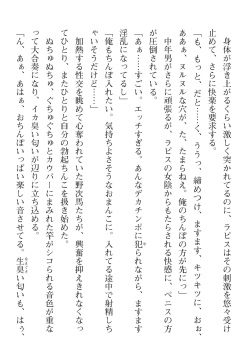 身体が浮き上がるくらい激しく突かれてるのに、ラピスはその刺激を悠々受け
止めて、さらに快楽を要求する。
「も、もっと、だと……く、ううっ、締めつけ、ますます、キツキツに、おぉ、
あぁぁ、ヌルヌルな穴が、た、たまらねえ。俺のちんぽの方が先にっ」
　中年男がさらに頑張るが、ラピスの女陰からもたらされる快感に、ペニスの方
が圧倒されている。
「あぁ……すごい、エッチすぎる、あんなデカチンポに犯られながら、ますます
淫乱になってるし」
「俺もちんぽ入れたい、気持ちよさそうなおまんこに。入れてる途中で射精しち
ゃいそうだけど……」
　加熱する性交を眺めて心奪われていた野次馬たちが、興奮を抑えきれなくなっ
てひとり、またひとりと自分の勃起ちんこを扱き始めた。
　ぬちゅぬちゅ、ぐちゅぐちゅとカウパーにまみれた竿がシコられる音色が重な
って大合奏になり、イカ臭い匂いが辺りに立ち込める。
「ん、あぁ、あはぁ、おちんぽいっぱい楽しい音させてる。生臭い匂いも、はぅ、